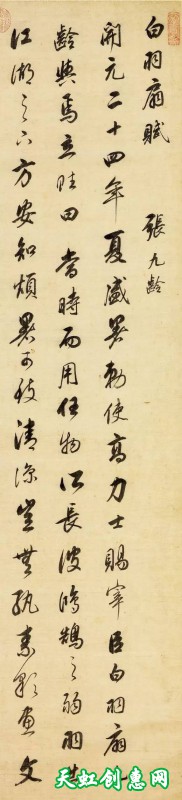 白羽扇賦 張九齡
開元二十四年夏盛暑勅使高力士賜宰臣白羽扇
齡與焉立賦曰當時而用任物所長彼鴻鵠之弱羽出
江湖之下方安知煩暑可致清涼豈無紈素彩畫文
天虹创意网